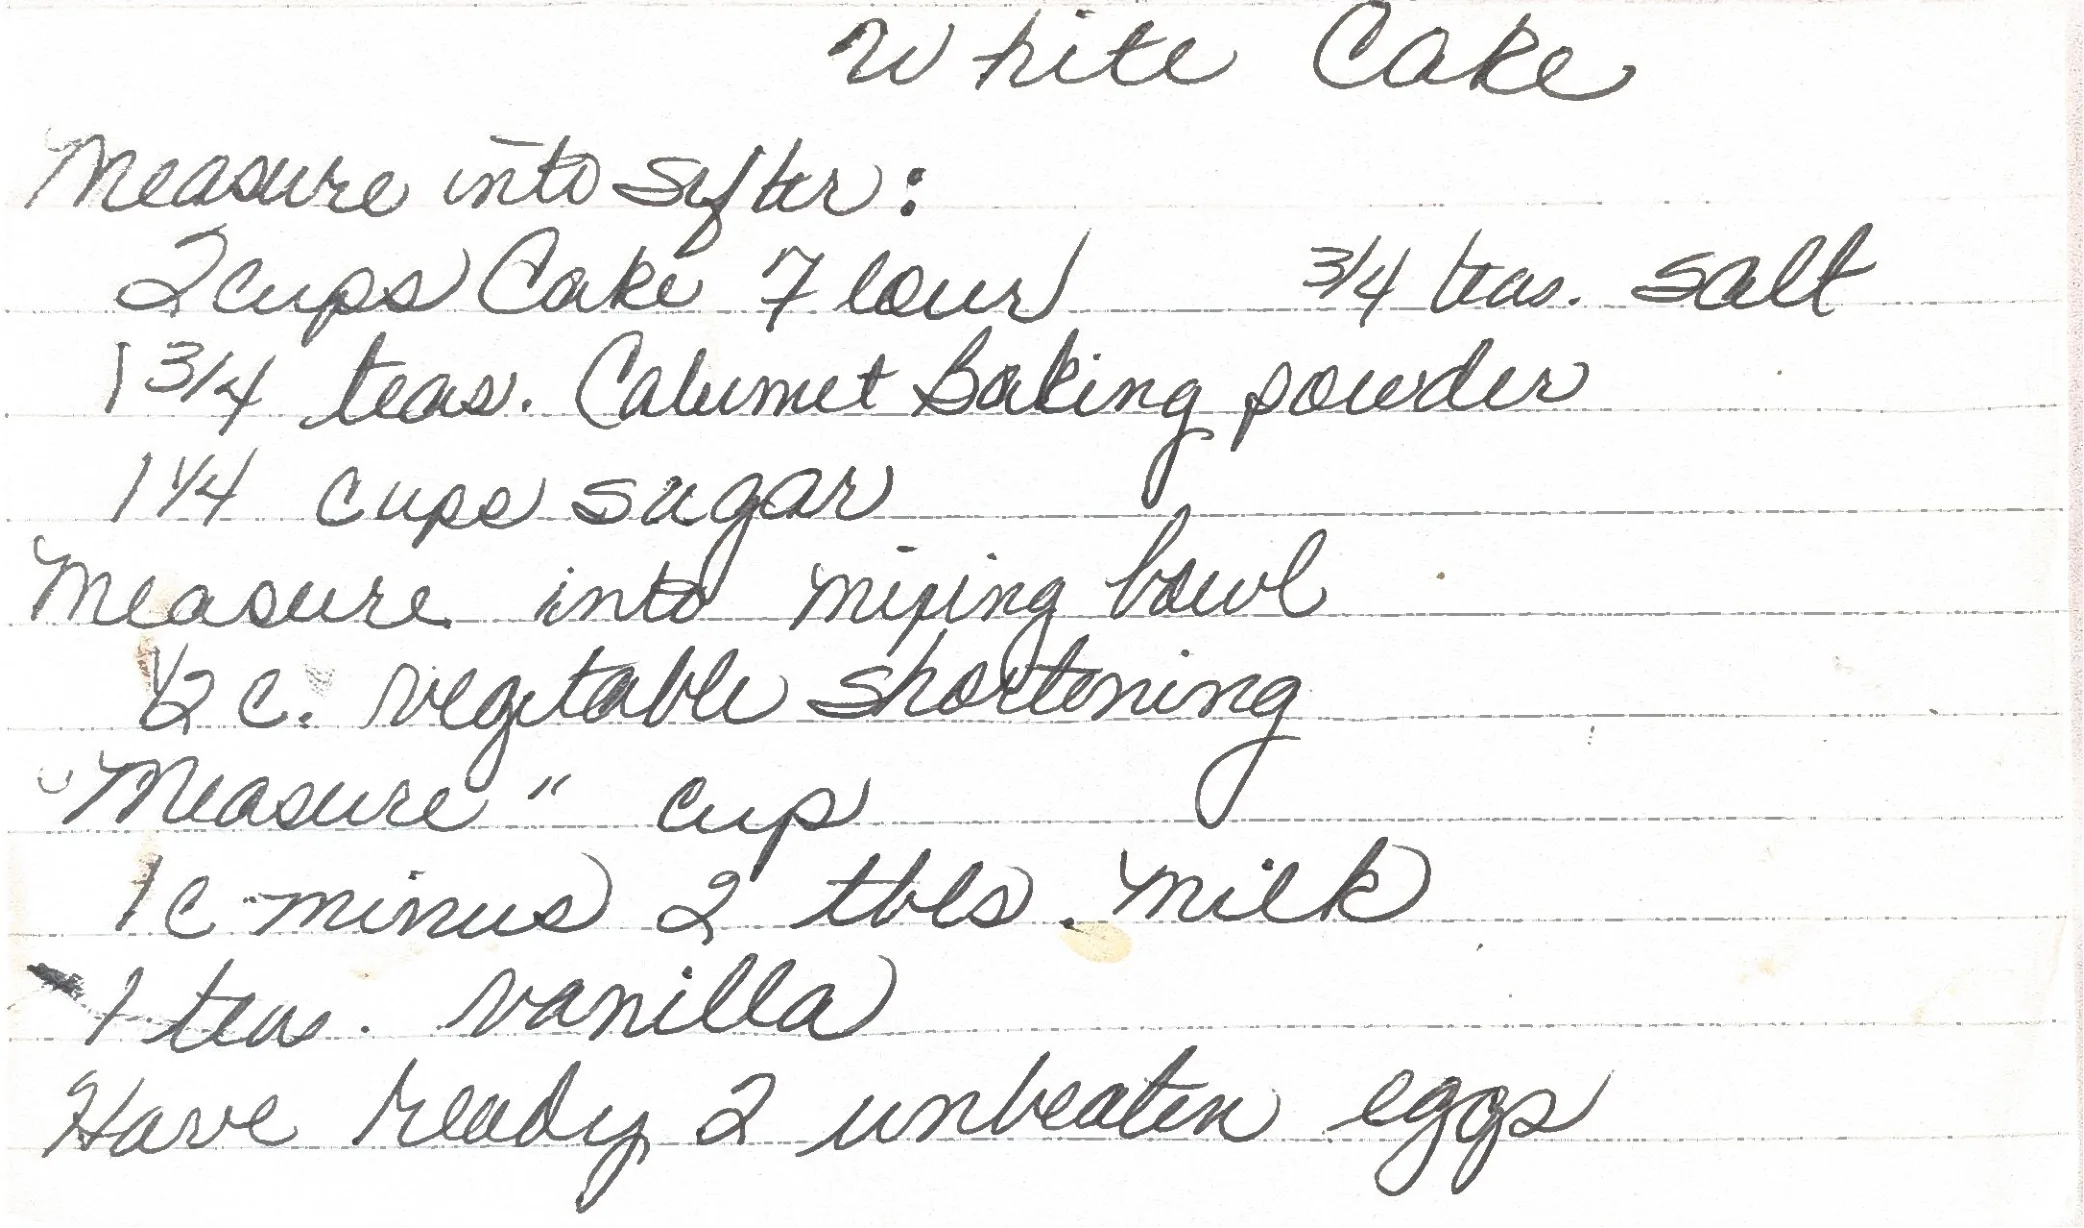 White Cake
Measure into sifter:
2 cups Cake Flour 3/4 teas. salt
1 3/4 teas. Calumet baking powder
1 1/4 cups sugar
Measure into mixing bowl
1/2 c. vegetable shortening
"Measure" cup
1 c minus 2 tbls. milk
1 teas. vanilla
Have ready 2 unbeaten eggs